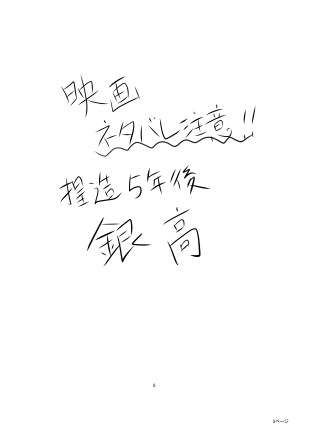 映画
ネタバレ注意!!
捏造5年後
銀高
8
9ページ